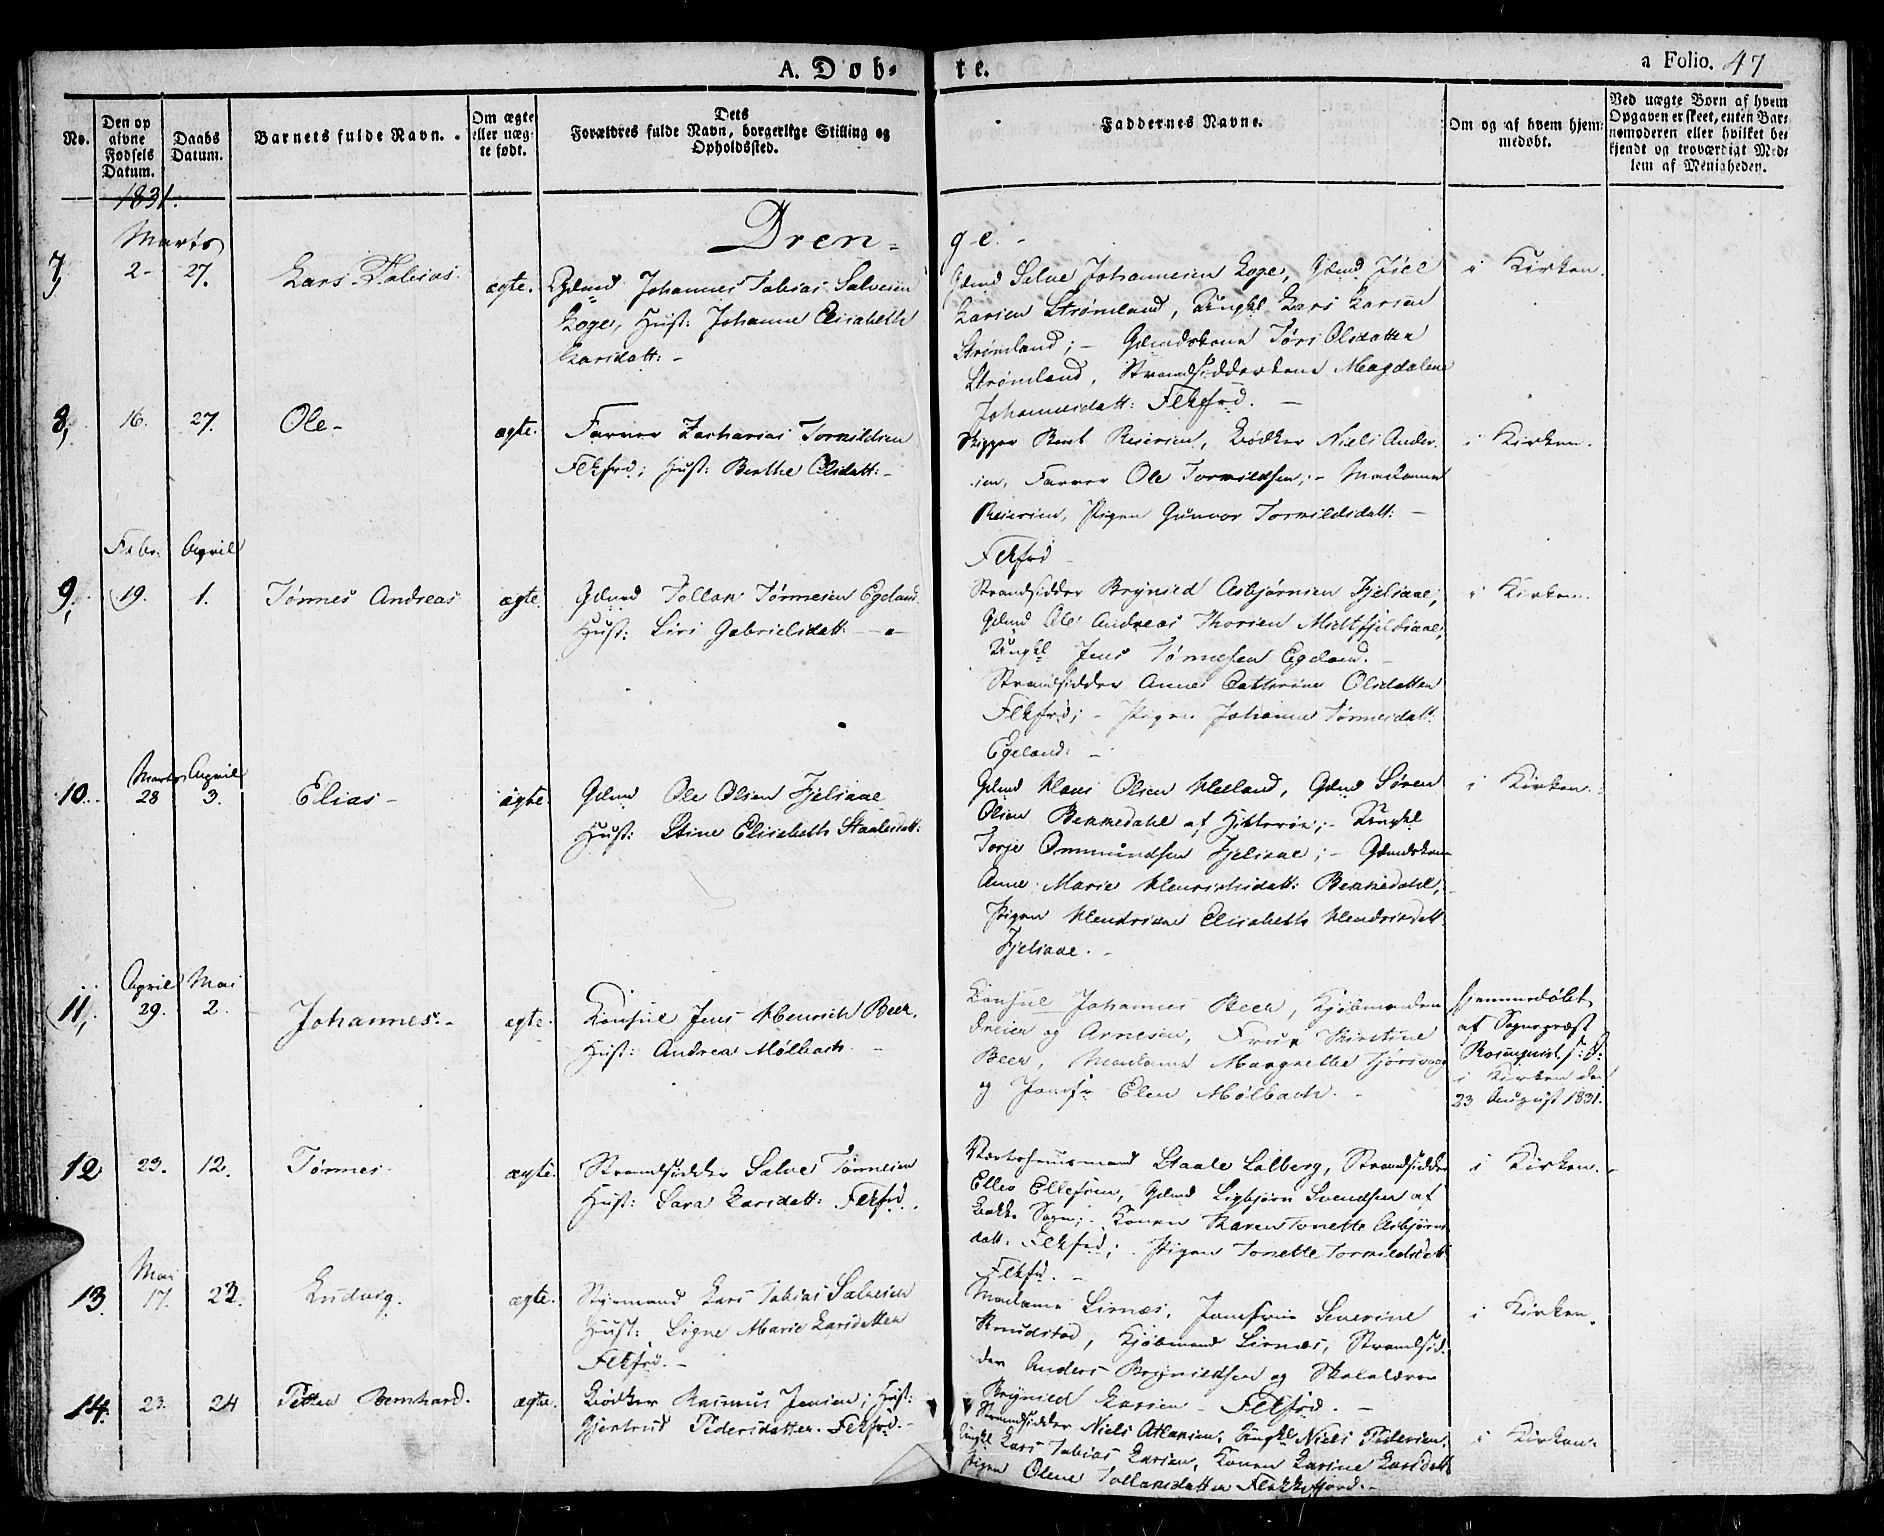 A. Døb-
te.
a Folio. 47
No.
Den op
givne
Fødsels
Datum.
Daabs
Datum.
Barnets fulde Navn.
Om ægte
eller uæg-
te født.
Dets
Forældres fulde Navn, borgerlige Stilling og
Opholdssted.
Faddernes Navne.
Om og af hvem hjem-
medøbt.
Ved uægte Børn af hvem
Opgaven er skeet, enten Bar-
nemoderen eller hvilket be-
kjendt og troværdigt Med-
lem af Menigheden.
1831.
Marts
Dren-
ge.
7,
2-
27.
Lars Tobias.
ægte.
Gdmd Johannes Tobias Salvesen
Loge, Hust: Johanne Elisabeth
Larsdatt: -
Gdmd Salve Johannesen Loge, Gdmd Joel
Larsen Strømland, Ungkl Lars Larsen
Strømland; - Gdmdskone Tøri Olsdatter
Strømland, Strandsidderkone Magdalene
Johannesdatt: Flkfrd. -
i Kirken.
8,
16.
27.
Ole-
ægte.
Farver Zacharias Torkildsen
Flkfrd; Hust: Berthe Olsdatt: -
Skipper Bent Reiersen, Bødker Niels Ander-
sen, Farver Ole Torkildsen; - Madamme
Reiersen, Pigen Gunvor Torkildsdatt: -
Flkfrd
i Kirken.
Febr.
April
9,
19.
1.
Tønnes Andreas
ægte.
Gdmd Tollak Tønnesen Egeland.
Hust: Siri Gabrielsdatt: -
Strandsidder Brynild Asbjørnsen Fjelsaae,
Gdmd Ole Andreas Thorsen Midtfjeldsaae,
Ungkl Jens Tønnesen Egeland. -
Strandsidder Anne Cathrine Olsdatter
Flkfrd; - Pigen Johanne Tønnesdatt:
Egeland: -
i Kirken.
Marts
April
10.
28
3.
Elias -
ægte.
Gdmd Ole Olsen Fjelsaae
Hust: Stine Elisabeth Staalesdatt:
Gdmd Klaus Olsen Helland, Gdmd Søren
Olsen Bekkedahl af Hitterøe; - Ungkl
Torje Ommundsen Fjelsaae; - Gdmdskone
Anne Marie Henrichsdatt: Bekkedahl,
Pigen Hendrikke Elisabeth Hendriksdatt:
Fjelsaae. -
i Kirken.
April
Mai
11,
29.
2.
Johannes. -
ægte.
Konsul Jens Henrich Beer.
Hust: Andrea Mølbach. -
Konsul Johannes Beer, Kjøbmændene
Dreier og Arnesen, Frue Kirstine
Beer, Madame Margrethe Tjørsvaag
og Jomfr Elen Mølbach. -
hjemmedøbt
af Sognepræst
Rosenqvist, f: d:
i Kirken den
23 August 1831.
12
23.
12.
Tønnes
ægte.
Strandsidder Salve Tønnesen
Hust: Sara Larsdatt: Flkfrd.
Værtshuusmand Staale Lølberg, Strandsidder
Elles Ellefsen, Gdmd Sigbjørn Svendsen af
Bakke Sogn; - Konen Karen Tonette Asbjørns-
datt: Flkfrd; - Pigen Tonette Torkildsdatt:
Flkfd. -
i Kirken.
Mai
13
17.
22.
Ludvig.
ægte.
Styrmand Lars Tobias Salvesen
Hust: Signe Marie Larsdatter
Flkfrd. -
Madame Sirnæs, Jomfrue Severine
Knudstad, Kjøbmand Sirnæs, Strandsid-
der Anders Brynildsen og Skolelærer
Brynild Larsen - Flkfrd. -
i Kirken.
14.
23.
24
Petter Bernhard.
ægte.
Bødker Rasmus Jensen; Hust:
Gjertrud Pedersdatter. Flkfrd. -
Strandsidder Niels Atlaksen, Ungkl Niels Pedersen,
Ungkl Lars Tobias Larsen, Konen Karine Larsdatt:
Pigen Olene Tollaksdatter Flekkefjord. -
i Kirken.